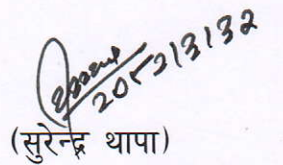 २०८२।३।३२
(सुरेन्द्र थापा)